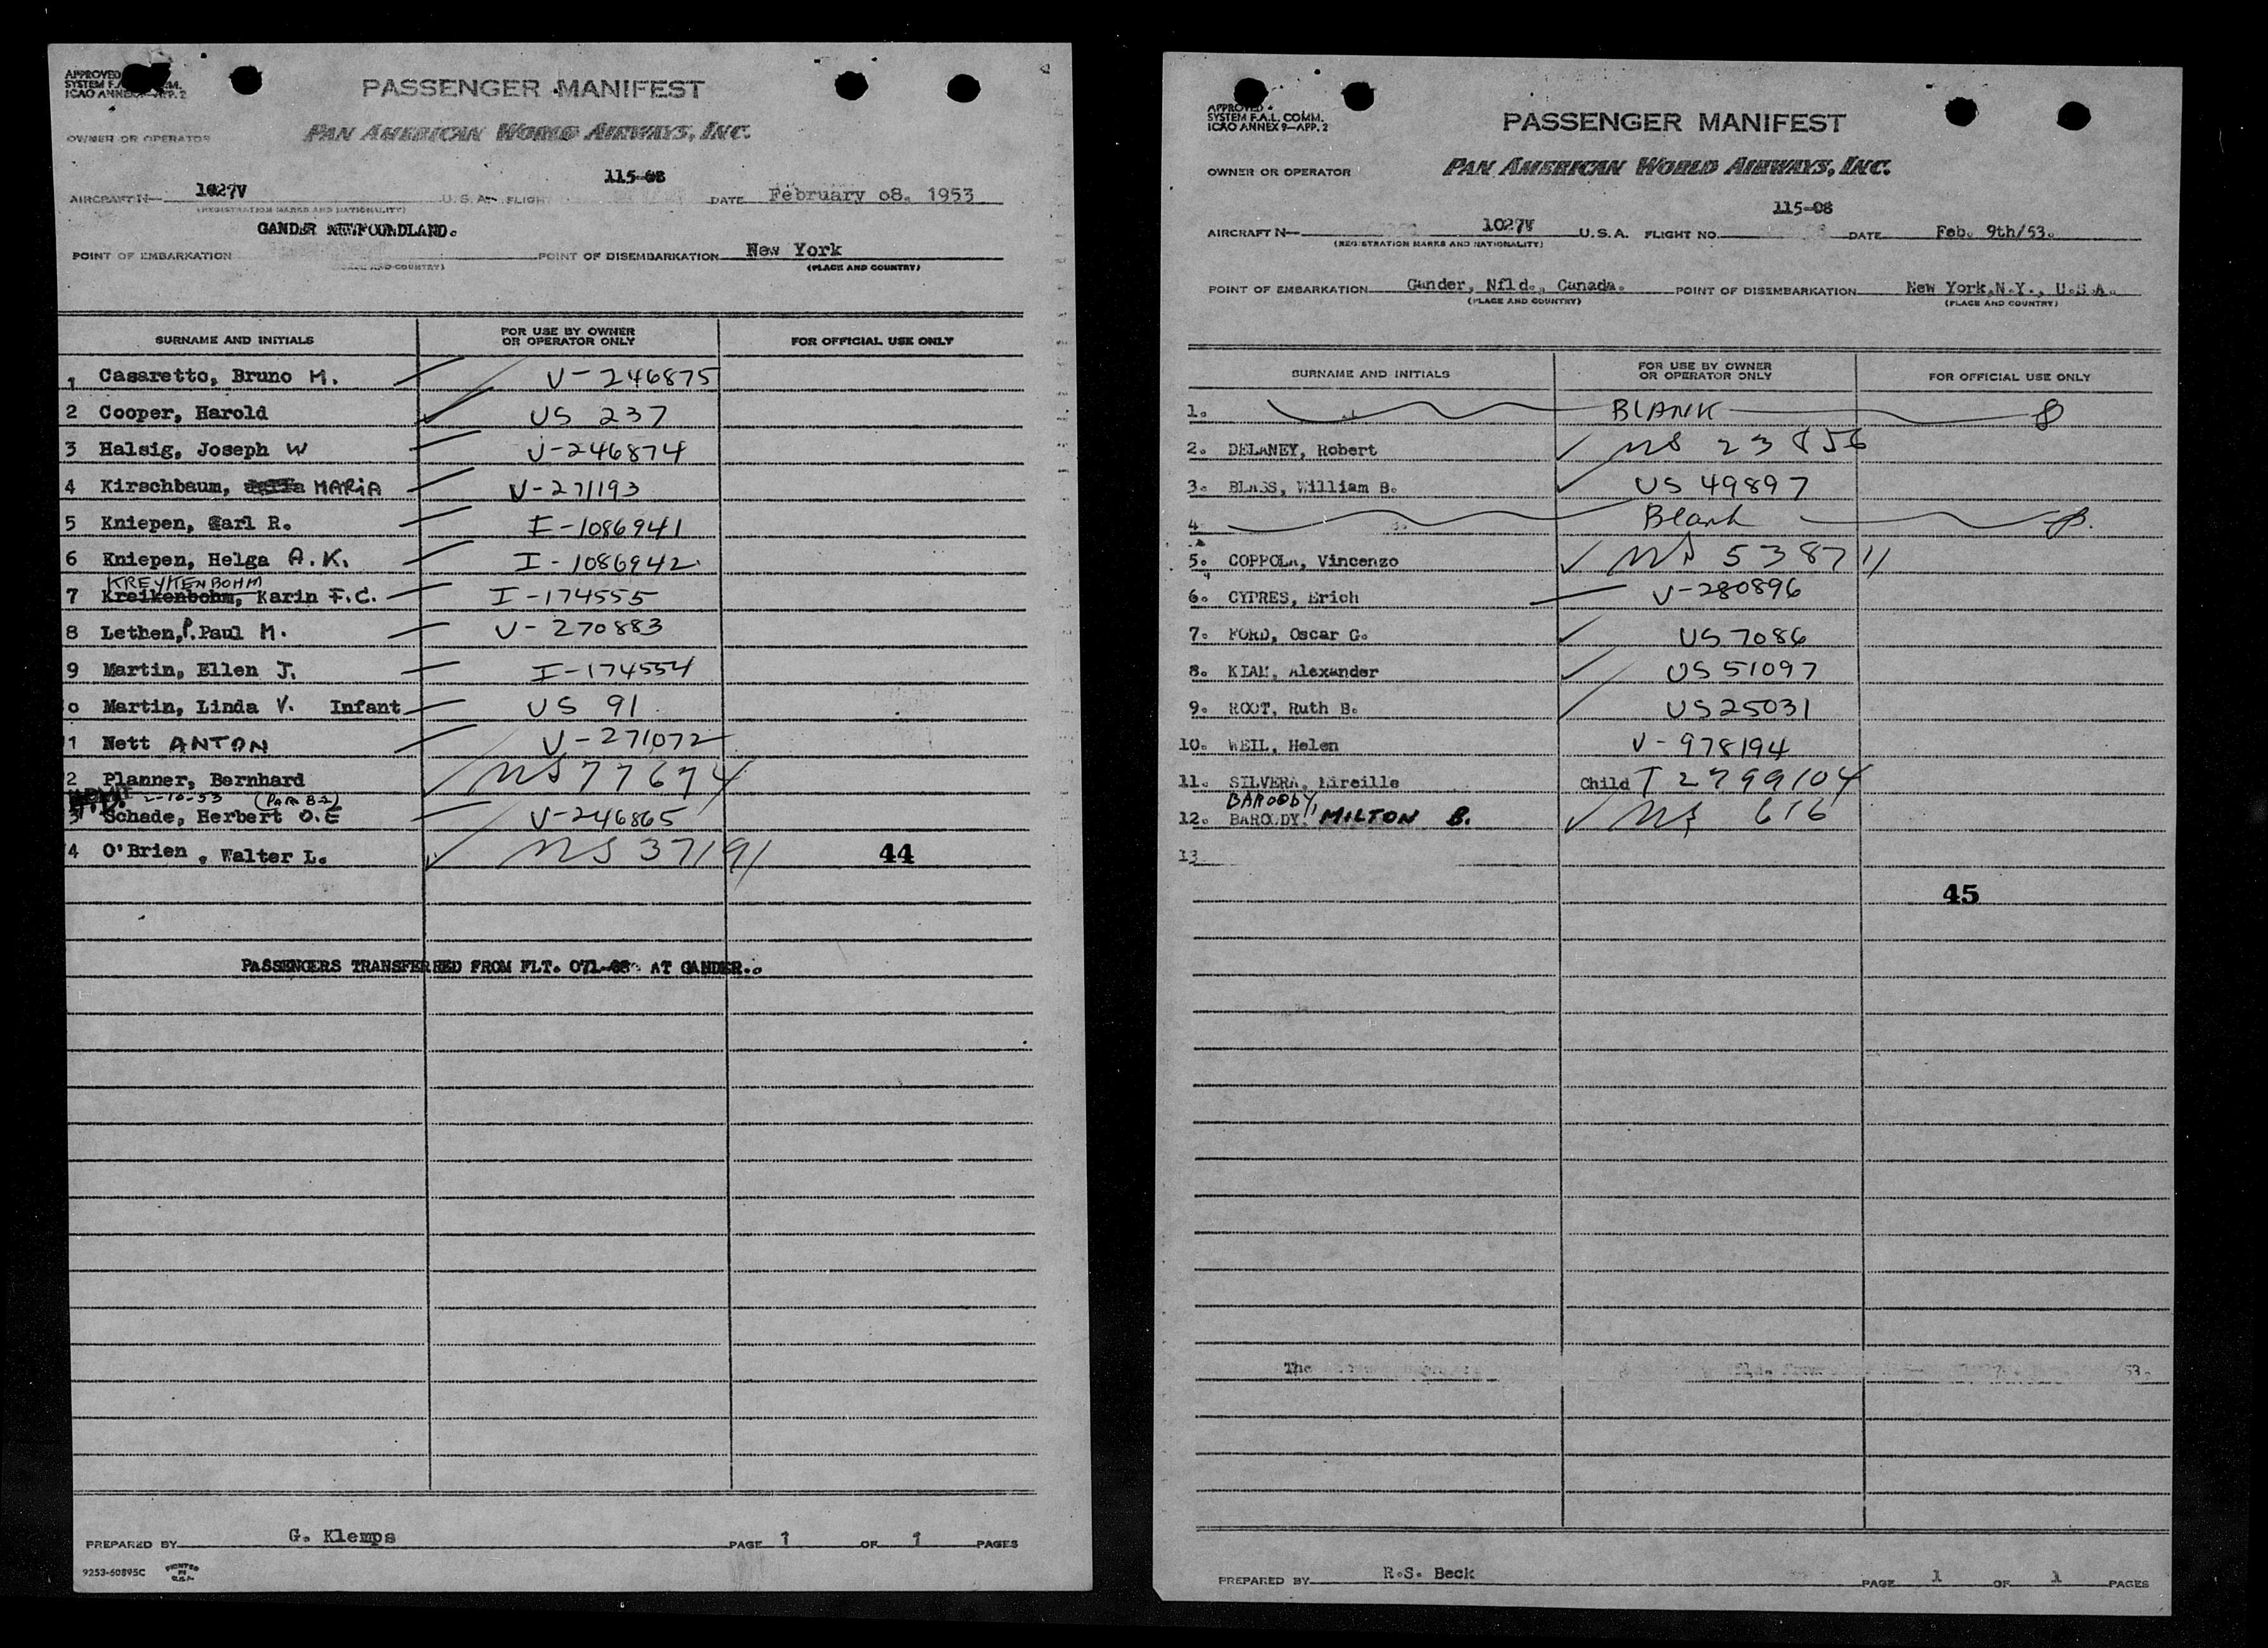 APPROVED
SYSTEM F.A.L. COMM.
ICAO ANNEX 9-APP. 2
PASSENGER MANIFEST
OWNER OR OPERATOR PAN AMERICAN WORLD AIRWAYS, INC.
115-08
AIRCRAFT N- 1027V U.S.A. FLIGHT DATE February 08. 1953
(REGISTRATION MARKS AND NATIONALITY)
GANDER NEWFOUNDLAND.
POINT OF EMBARKATION POINT OF DISEMBARKATION New York
(PLACE AND COUNTRY) (PLACE AND COUNTRY)
SURNAME AND INITIALS FOR USE BY OWNER OR OPERATOR ONLY FOR OFFICIAL USE ONLY
1 Casaretto, Bruno M. V-246875
2 Cooper, Harold US 237
3 Halsig, Joseph W V-246874
4 Kirschbaum, MARIA V-271193
5 Kniepen, Carl R. I-1086941
6 Kniepen, Helga A.K. I-1086942
KREYKENBOHM
7 Kreikenbohm, Karin F.C. I-174555
8 Lethen, P. Paul M. V-270883
9 Martin, Ellen J. I-174554
0 Martin, Linda V. Infant US 91
1 Nett ANTON V-271072
2 Planner, Bernhard US 77674
2-10-53 (PARA 82)
3 Schade, Herbert O.E V-246865
4 O'Brien, Walter L. US 37191 44
PASSENGERS TRANSFERRED FROM FLT. 071-08 AT GANDER..
PREPARED BY G. Klemps PAGE 1 OF 1 PAGES
9253-60895C PRINTED IN U.S.A.
APPROVED
SYSTEM F.A.L. COMM.
ICAO ANNEX 9-APP. 2
PASSENGER MANIFEST
OWNER OR OPERATOR PAN AMERICAN WORLD AIRWAYS, INC.
115-08
AIRCRAFT N- 1027V U.S.A. FLIGHT NO. DATE Feb. 9th/53.
(REGISTRATION MARKS AND NATIONALITY)
POINT OF EMBARKATION Gander, Nfld., Canada. POINT OF DISEMBARKATION New York, N.Y., U.S.A.
(PLACE AND COUNTRY) (PLACE AND COUNTRY)
SURNAME AND INITIALS FOR USE BY OWNER OR OPERATOR ONLY FOR OFFICIAL USE ONLY
1. BLANK
2. DELANEY, Robert US 23856
3. BLASS, William B. US 49897
4 Blank
5. COPPOLA, Vincenzo US 538711
6. CYPRES, Erich V-280896
7. FORD, Oscar G. US 7086
8. KIAM, Alexander US 51097
9. ROOT, Ruth B. US 25031
10. WEIL, Helen V-978194
11. SILVERA, Mireille Child T 2799104
BAROODY,
12. BAROODY, MILTON B. US 616
13.
45
The 53.
PREPARED BY R.S. Beck PAGE 1 OF 1 PAGES